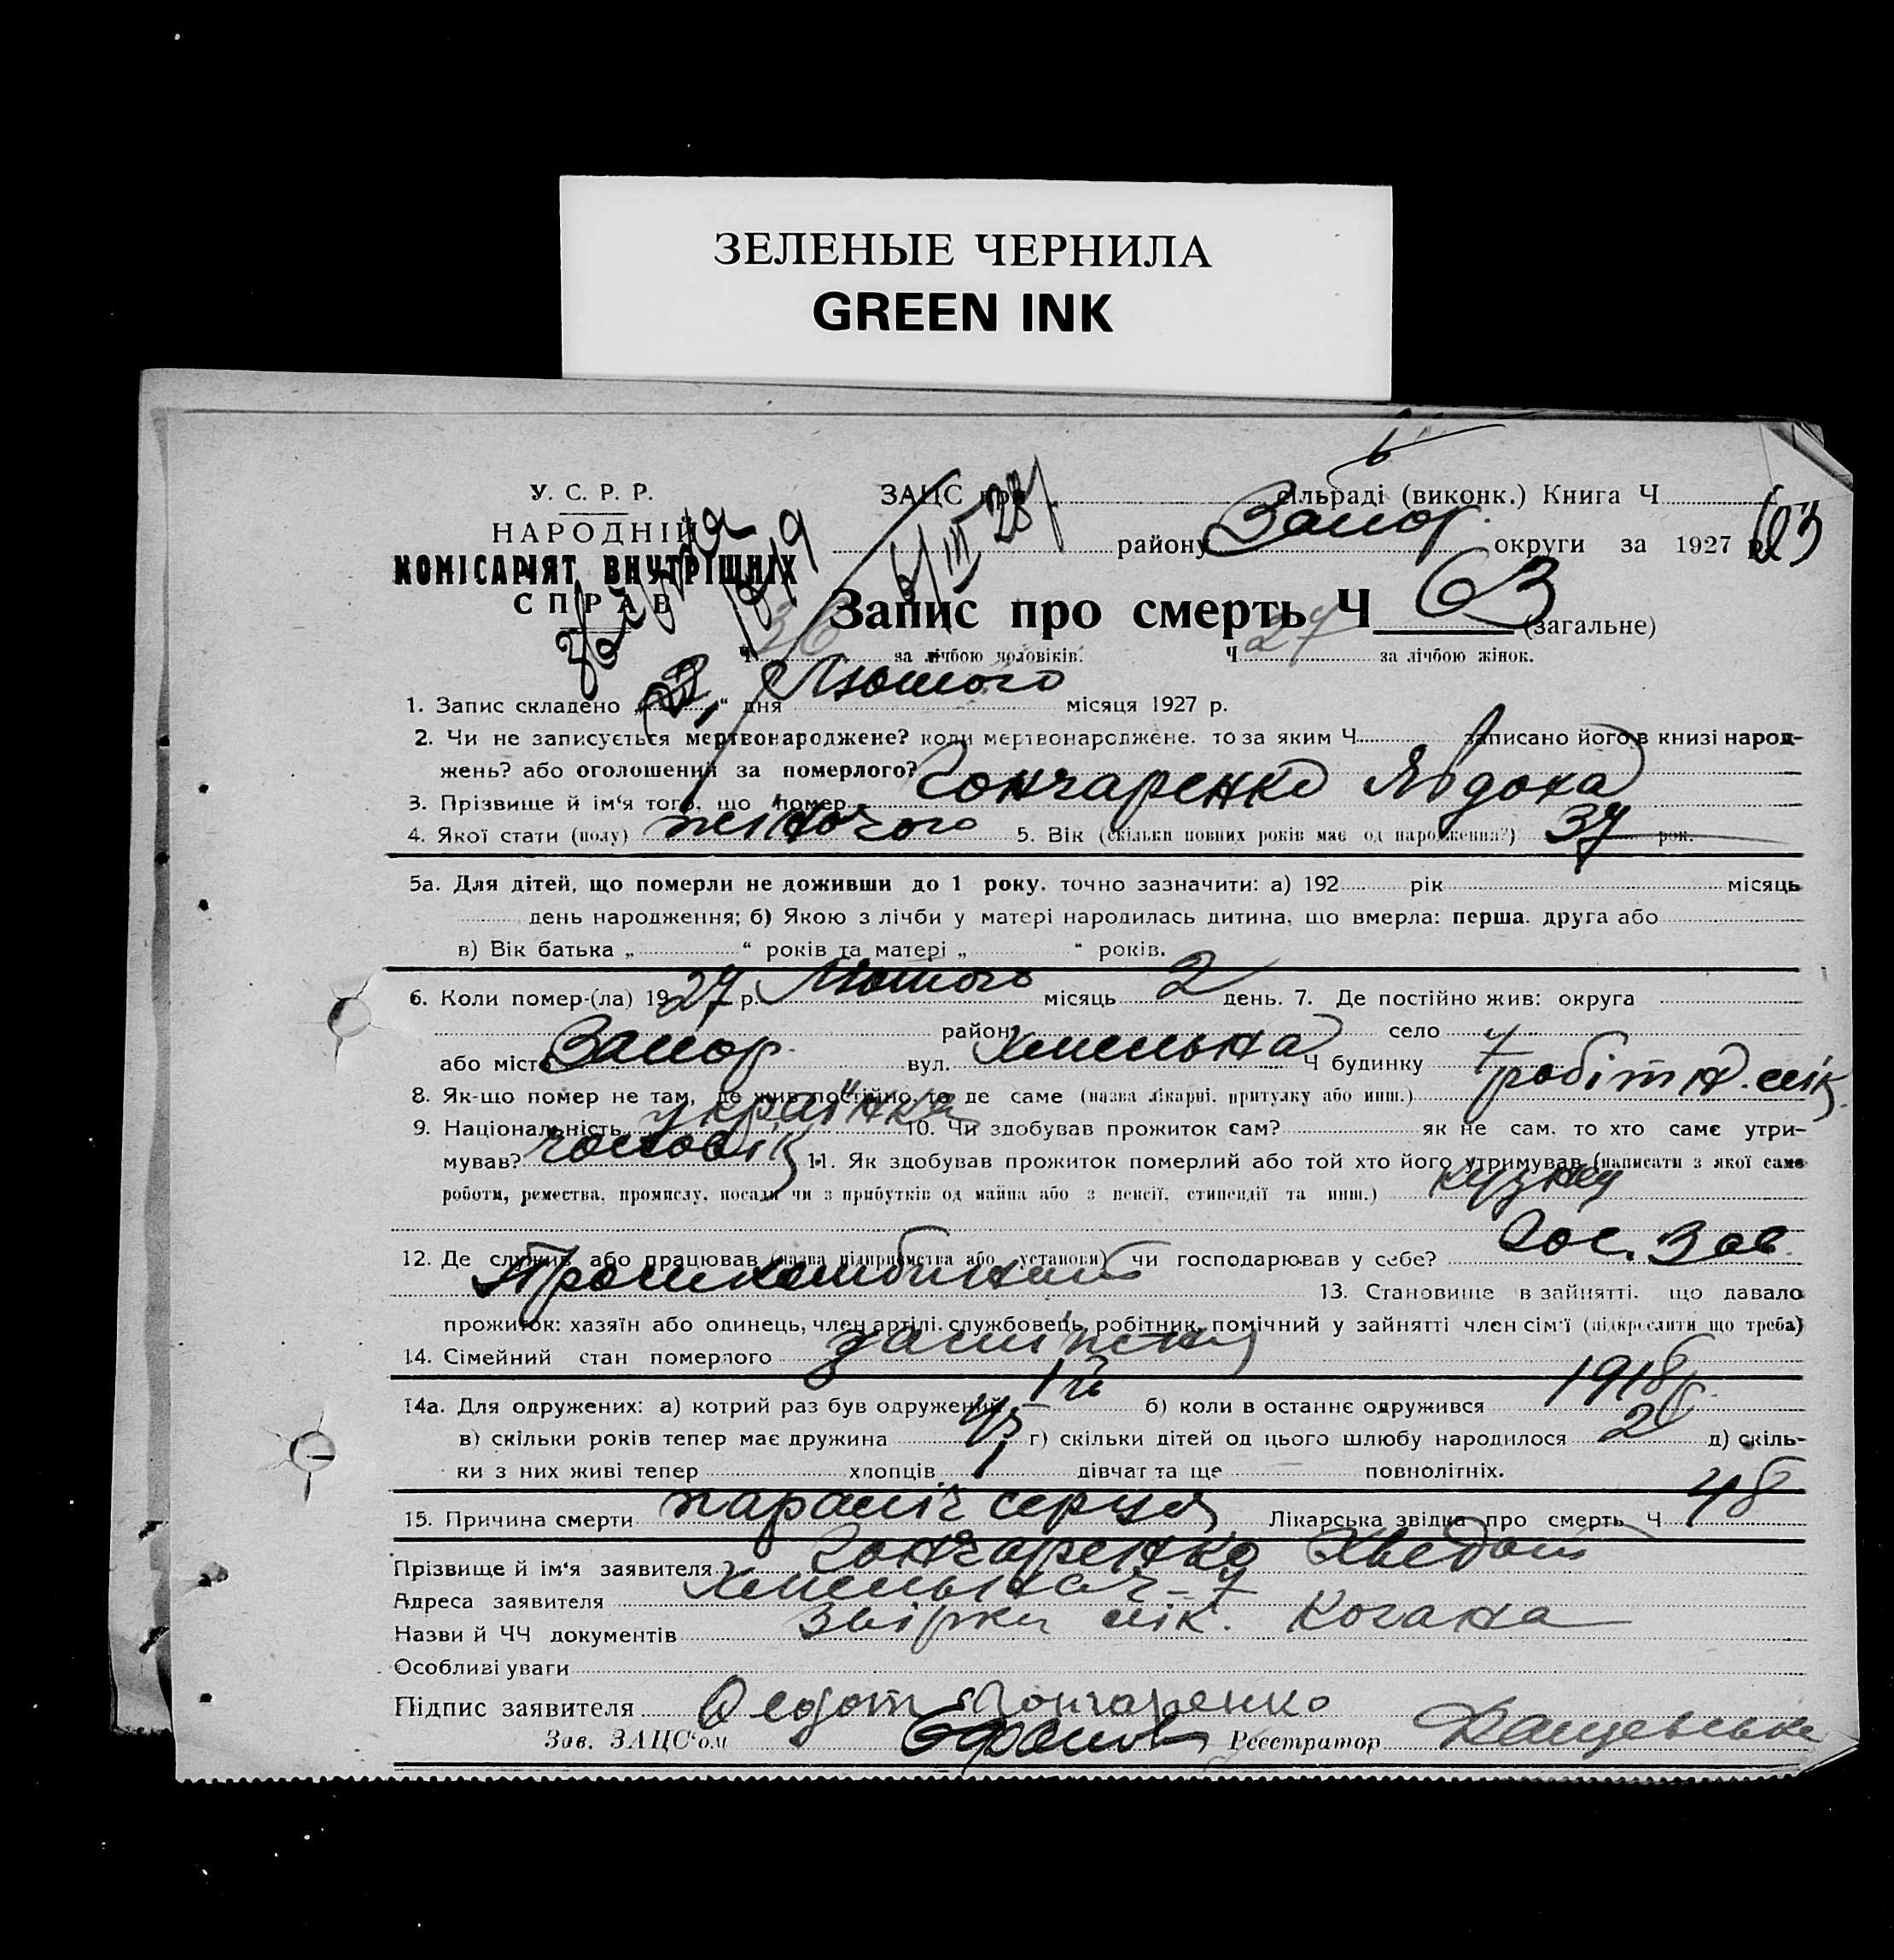 ЗЕЛЕНЫЕ ЧЕРНИЛА
GREEN INK
У. С. Р. Р.
НАРОДНІЙ
КОМІСАРІЯТ ВНУТРІШНІХ
СПРАВ
ЗАЦС при сільраді (виконк.) Книга Ч
району Запор. округи за 1927 р. 63
6/III 28
Запис про смерть Ч 63 (загальне)
Ч 36 за лічбою чоловіків. Ч 27 за лічбою жінок.
1. Запис складено „ “ дня Лютого місяця 1927 р.
2. Чи не записується мертвонароджене? коли мертвонароджене, то за яким Ч записано його в книзі народ-
жень? або оголошений за померлого?
3. Прізвище й ім'я того, що помер Гончаренко Явдоха
4. Якої стати (полу) жіночого 5. Вік (скільки повних років має од народження?) 37 рок.
5а. Для дітей, що померли не доживши до 1 року, точно зазначити: а) 192 рік місяць
день народження; б) Якою з лічби у матері народилась дитина, що вмерла: перша, друга або
в) Вік батька „ “ років та матері „ “ років.
6. Коли помер-(ла) 1927 р. Лютого місяць 2 день. 7. Де постійно жив: округа
район село
або місто Запор. вул. Хмельна Ч будинку 7
8. Як-що помер не там, де жив постійно, то де саме (назва лікарні, притулку або инш.) робітн. лік.
9. Національність українка 10. Чи здобував прожиток сам? як не сам, то хто саме утри-
мував? чоловік 11. Як здобував прожиток померлий або той хто його утримував (написати з якої саме
роботи, ремества, промислу, посади чи з прибутків од майна або з пенсії, стипендії та инш.)
12. Де служив або працював (назва підприємства або установи) чи господарював у себе? Гос. Зав.
13. Становище в зайнятті, що давало
прожиток: хазяїн або одинець, член артілі, службовець, робітник, помічний у зайнятті член сім'ї (підкреслити що треба)
14. Сімейний стан померлого заміжня
14а. Для одружених: а) котрий раз був одружений 1й б) коли в останнє одружився 1918
в) скільки років тепер має дружина 45 г) скільки дітей од цього шлюбу народилося 2 д) скіль-
ки з них живі тепер хлопців 1 дівчат та ще повнолітніх.
15. Причина смерти параліч серця Лікарська звідка про смерть Ч 48
Прізвище й ім'я заявителя Гончаренко Хведот
Адреса заявителя Хмельная - 7
Назви й ЧЧ документів Звірки лік. Когана
Особливі уваги
Підпис заявителя Федот Гончаренко
Зав. ЗАЦС'ом Реєстратор